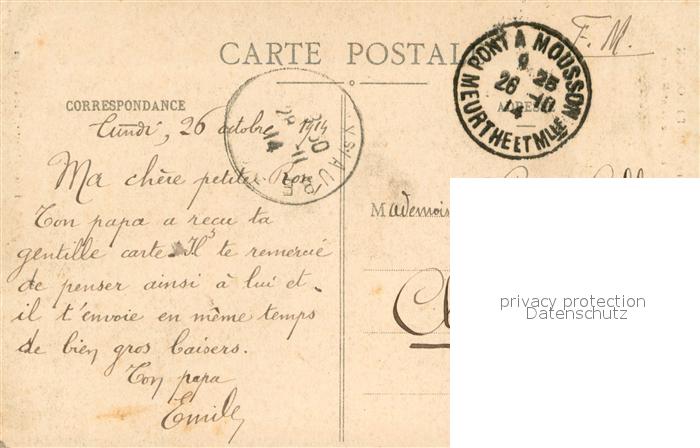 F. M.
CARTE POSTAL
PONT A MOUSSON
9 25
26 - 10
14
MEURTHE ET MLLE
CORRESPONDANCE
Lundi, 26 octobre 1914
Ma chère petite
Ton papa a recu ta
gentille carte. Il te remercie
de penser ainsi à lui et
il t'envoie en même temps
de bien gros baisers.
Ton papa
Emile
Mademois
privacy protection
Datenschutz